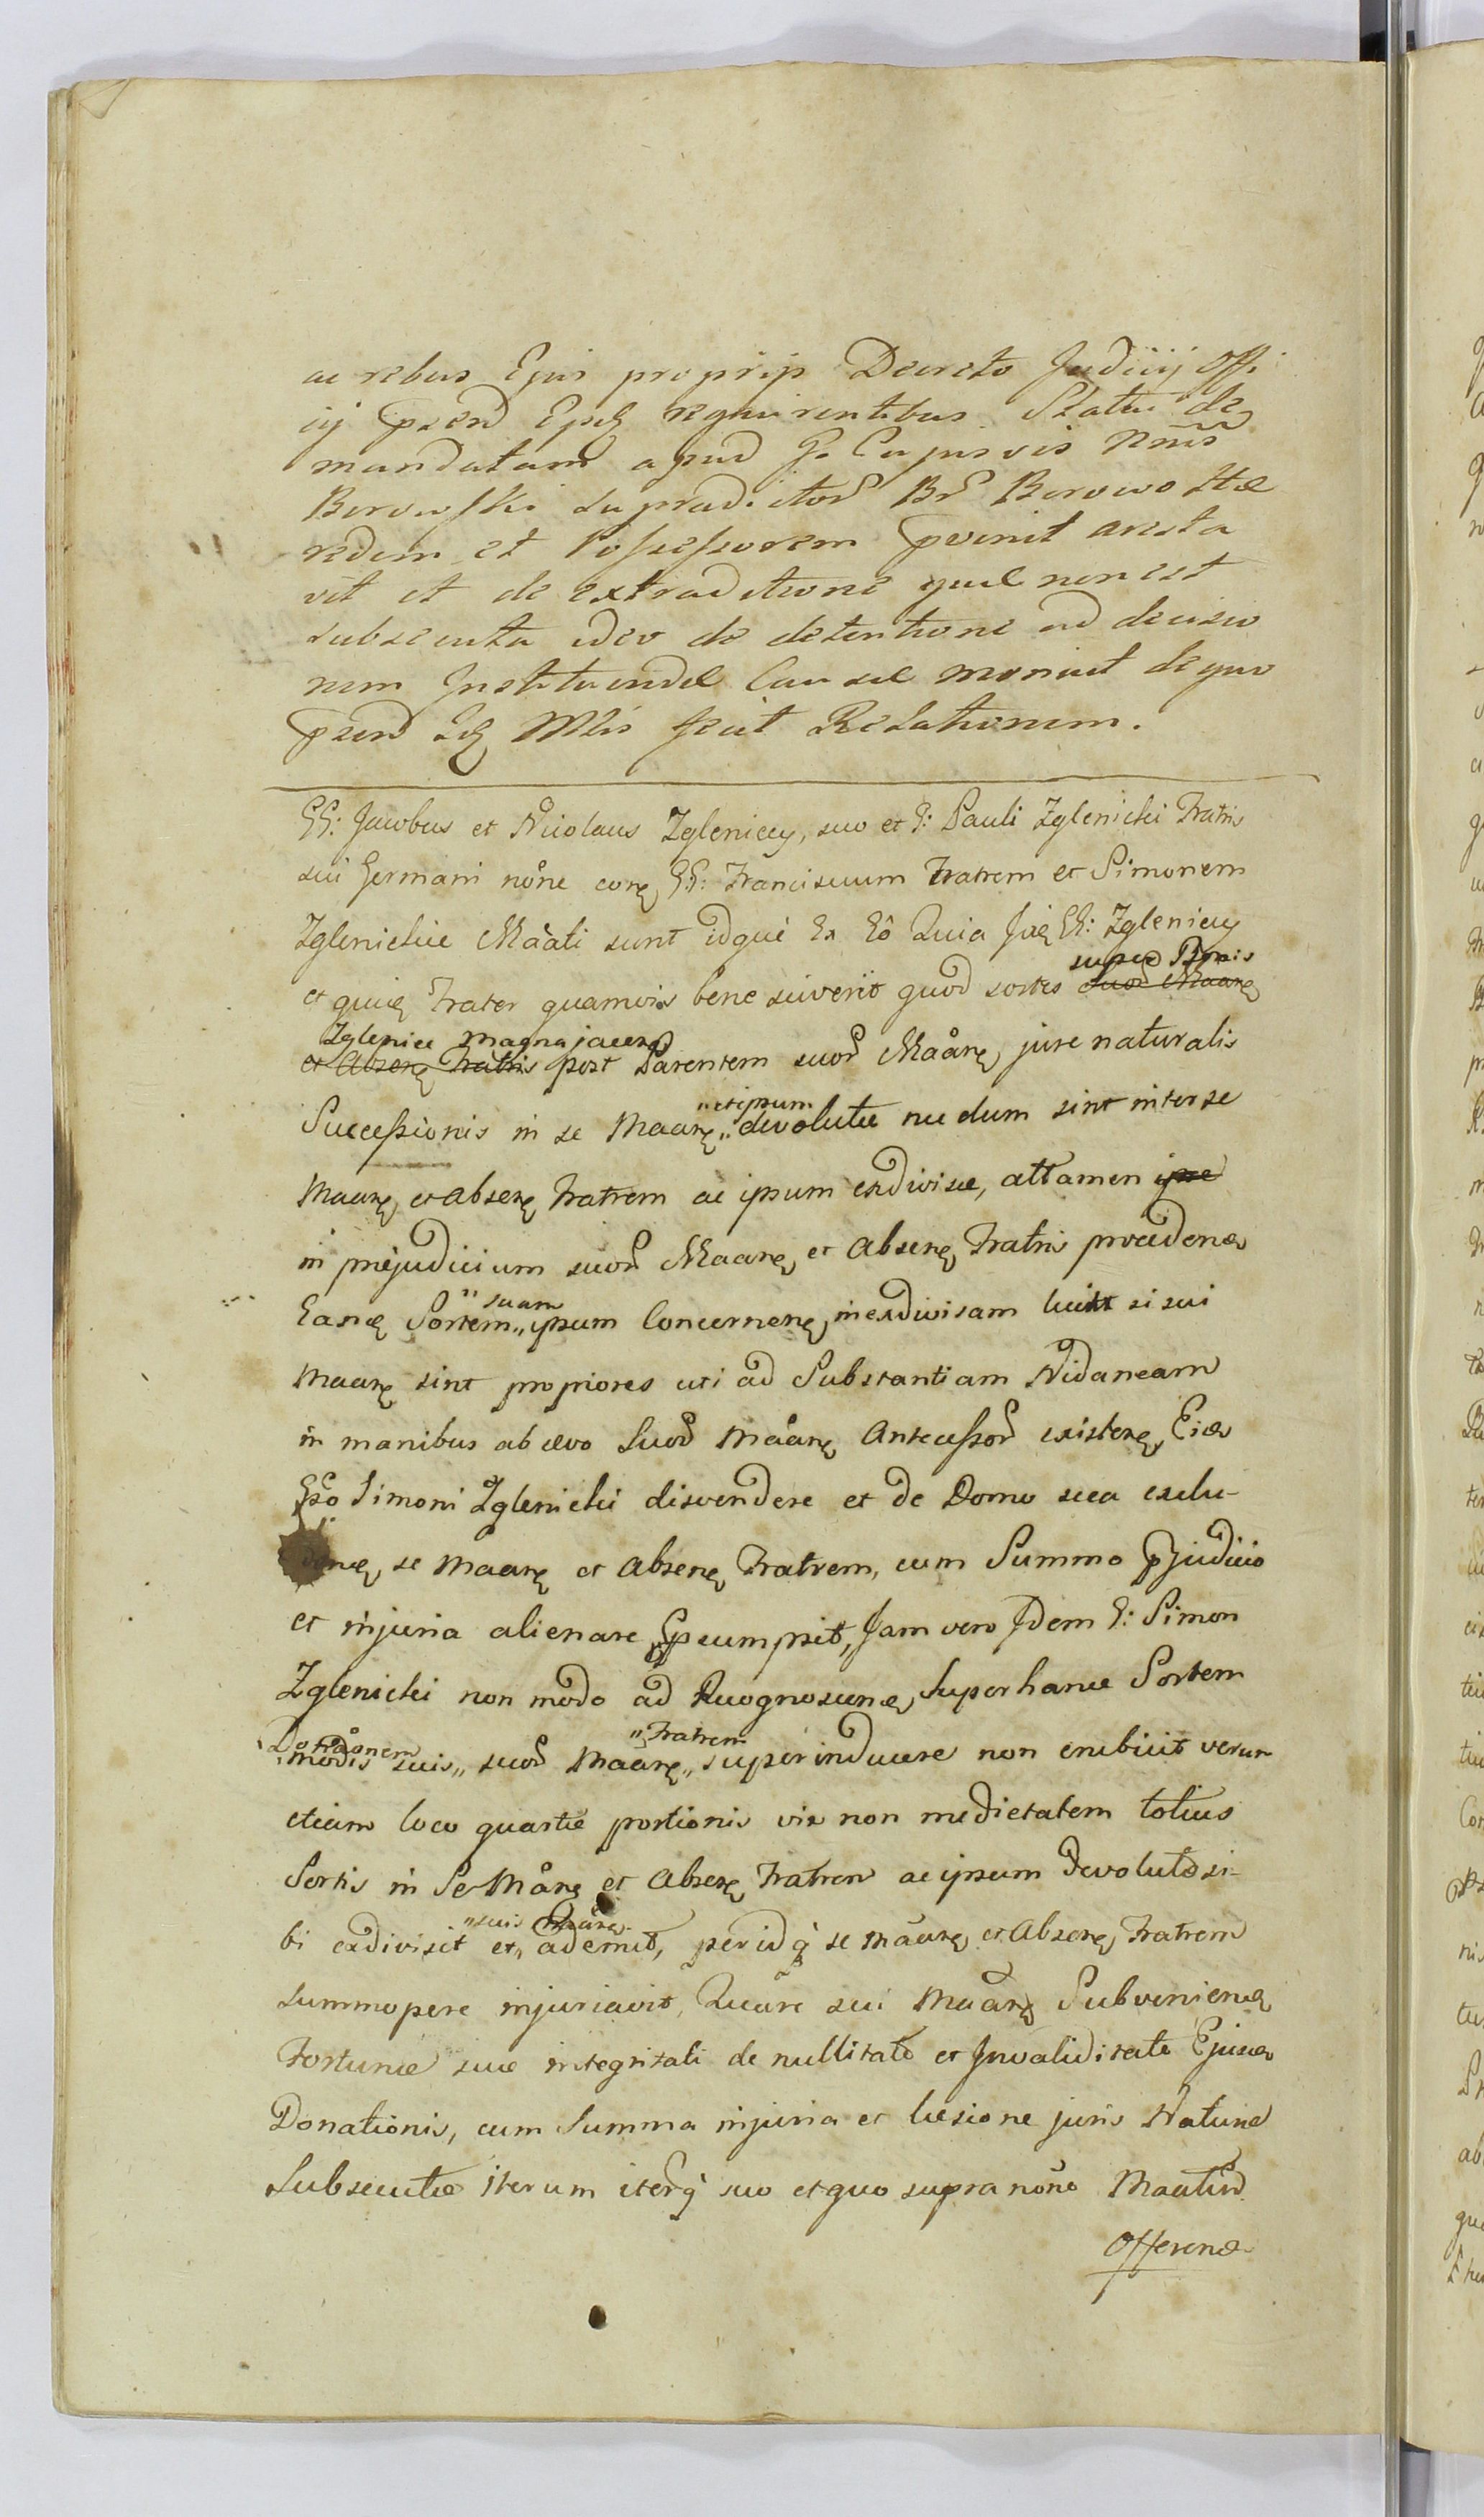 ac rebus Ejus proprijs Decreto Judicij Offi
cij psend Ejusq requirentibus Statui de
mandatam apud G. Cujusvis Nmis
Borowski supradictor Br Borowo Hæ
redem et Possessorem pvenit aresta
vit et de extraditione quæ non est
subsecuta ideo de detentione ad decisio
nem Instituendæ Causæ monuit de quo
psend Mlis fecit Relationem.
GG: Jacobus et Nicolaus Zgleniccy, suo et G: Pauli Zglenicki Fratris
sui Germani nõne corq GG: Franciscum Fratrem et Simonem
Zglenickie Maãti sunt idque Ex Eô Quia GG: Zgleniccy
super Bonis
et quiq Frater quamvis bene sciverit quod sortes suor Maarq
Zglenice Magna jacenq
et Absenq Fratris post Parentem suor Maãrq jure naturalis
"et ipsum
Successionis in se Maarq" devolutæ nec dum sint inter se
Maarq et absenq Fratrem ac ipsum exdivisæ, attamen ipse
in præjudicium suor Maarq et Absenq Fratris procedenq
" suam
Eanq Sortem" ipsum Concernenq inexdivisam licet si sui
Maarq sint propiores uti ad Substantiam Nidaneam
in manibus ab ævo Suor Maãrq Antecessor existenq Eiq
Gso Simoni Zglenicki disvendere et de Domo sua exclu-
denq se Maarq et absenq Fratrem, cum Summo pjudicio
et injuria alienare psumpsit, Jam vero Idem G: Simon
Zglenicki non modo ad Recognoscenq Super hance Sortem
Dotãonem "Fratrem
modis suis" suor Maarq" superinducere non erubuit verum
etiam loco quartæ portionis vix non medietatem totius
Sortis in Se Mãrq et Absenq Fratrem ac ipsum Devolutæ si-
"suis Maãrq
bi exdivisit et" ademit, per idq se mãarq et Absenq Fratrem
summopere injuriavit, Quare sui Maãrq Subvenienq
Fortunæ suæ integritati de nullitate et Invaliditate Ejusq
Donationis, cum Summa injuria et læsione juris Naturæ
Subsecutæ iterum iterq suo et quo supra nõne Maatur
Offerenq